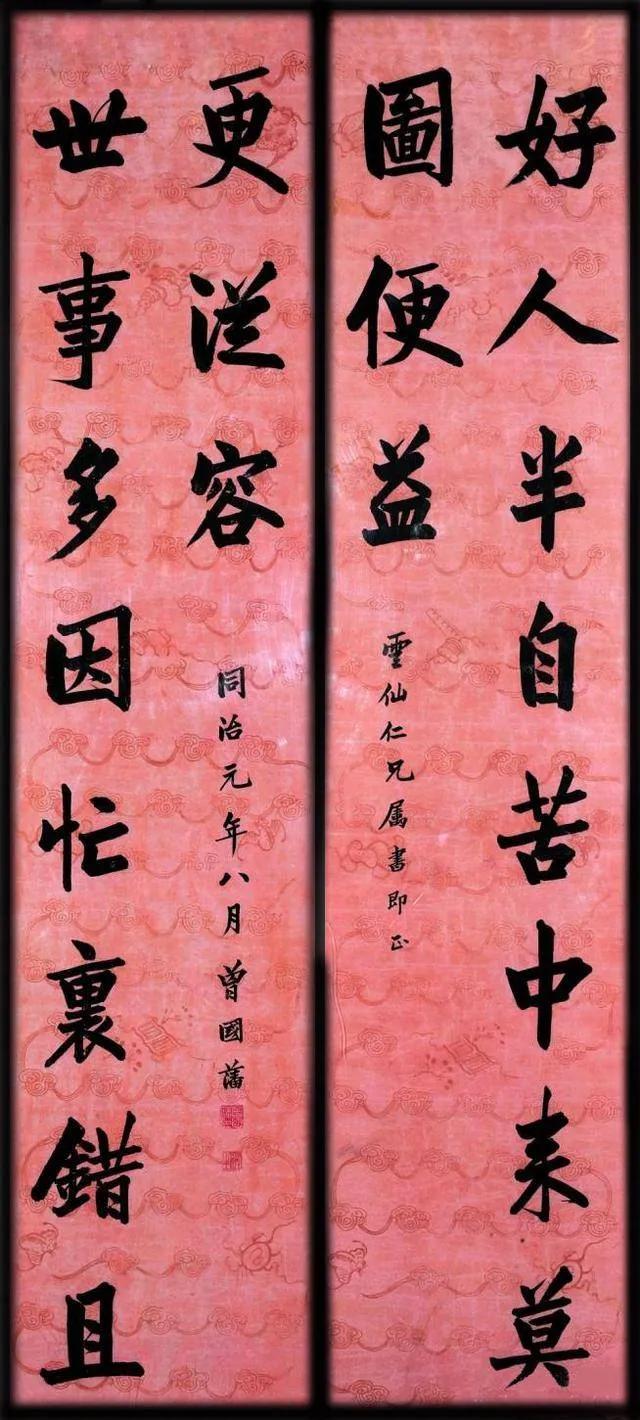 好人半自苦中来莫
圖便益
雲仙仁兄属書即正
世事多因忙裏錯且
更従容
同治元年八月曾國藩